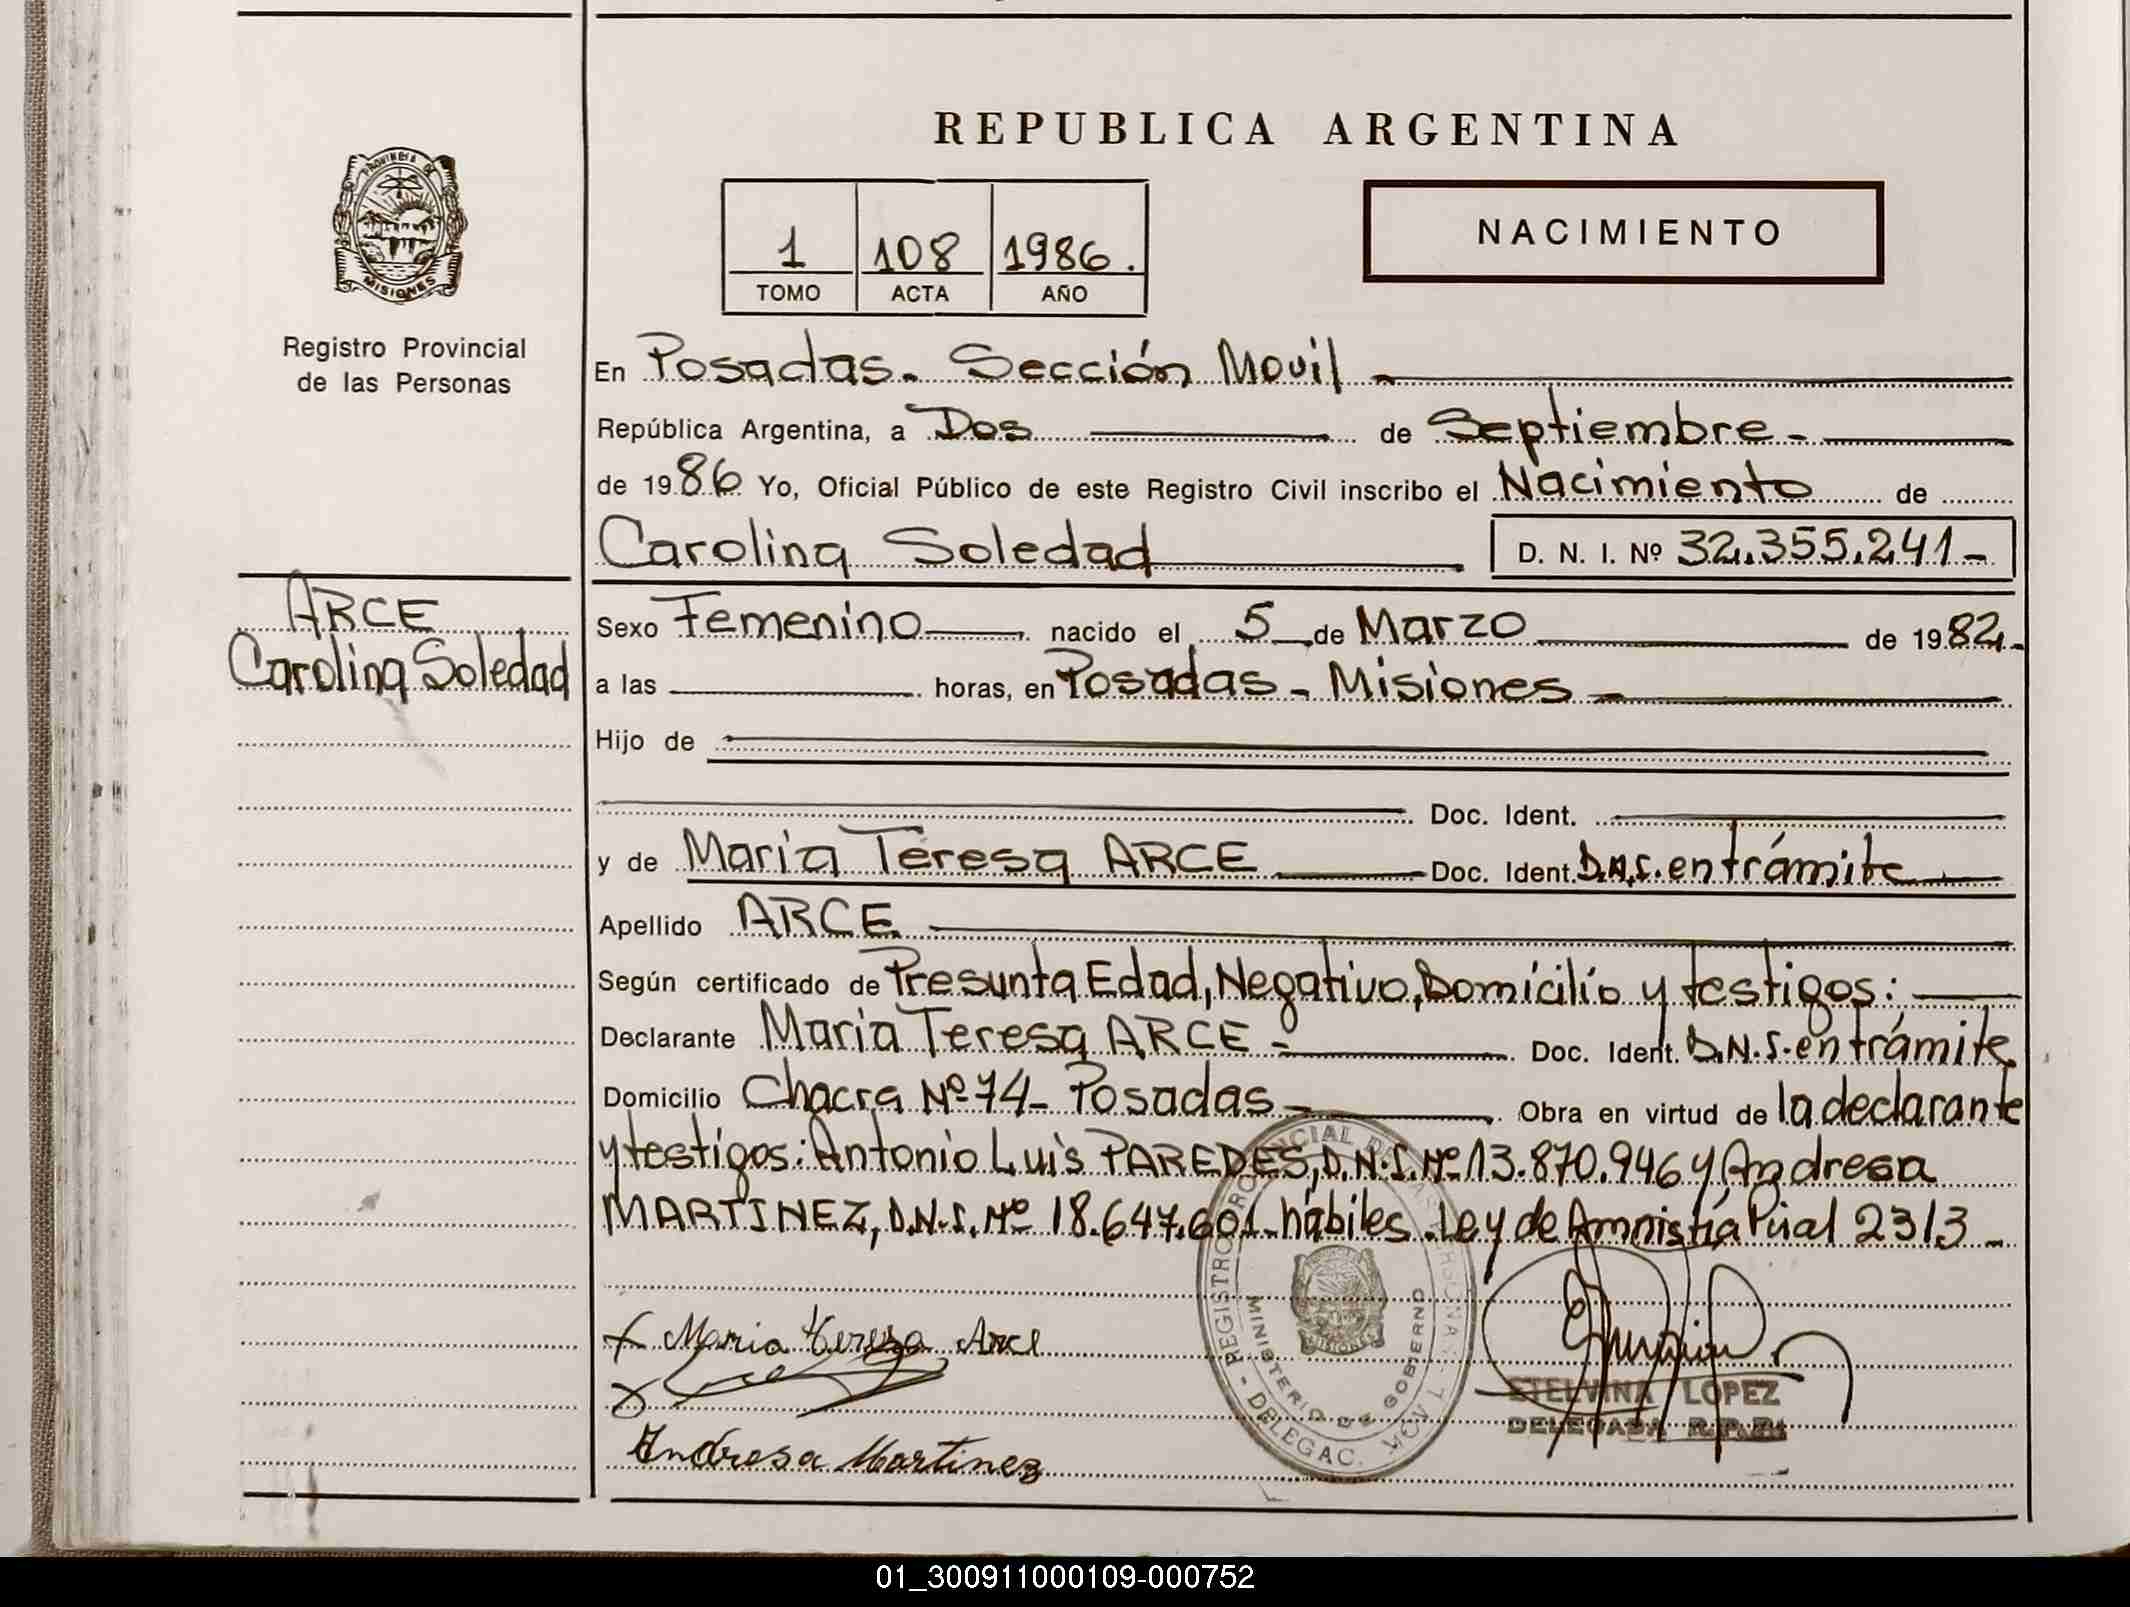 REPUBLICA ARGENTINA
PROVINCIA DE
MISIONES
1 108 1986.
TOMO ACTA AÑO
NACIMIENTO
Registro Provincial
de las Personas
En Posadas. Sección Movil
República Argentina, a Dos de Septiembre.
de 1986 Yo, Oficial Público de este Registro Civil inscribo el Nacimiento de
Carolina Soledad D. N. I. Nº 32.355.241-
ARCE
Carolina Soledad
Sexo Femenino nacido el 5 de Marzo de 1982.
a las horas, en Posadas - Misiones
Hijo de
Doc. Ident.
y de Maria Teresa ARCE Doc. Ident. D.N.I. en trámite
Apellido ARCE
Según certificado de Presunta Edad, Negativo, Domicilio y testigos:
Declarante Maria Teresa ARCE - Doc. Ident. D.N.I. en trámite
Domicilio Chacra Nº 74- Posadas Obra en virtud de la declarante
y testigos: Antonio Luis PAREDES, D.N.I. Nº 13.870.946 y Andresa
MARTINEZ, D.N.I. Nº 18.647.601-hábiles. Ley de Amnistía 2313-
x Maria tereza Arce
Andresa Martinez
REGISTRO PROVINCIAL DE LAS PERSONAS - DELEGAC. MOVIL 1
MINISTERIO DE GOBIERNO
MISIONES
STELVINA LOPEZ
DELEGADA R.P.P.
01_300911000109-000752